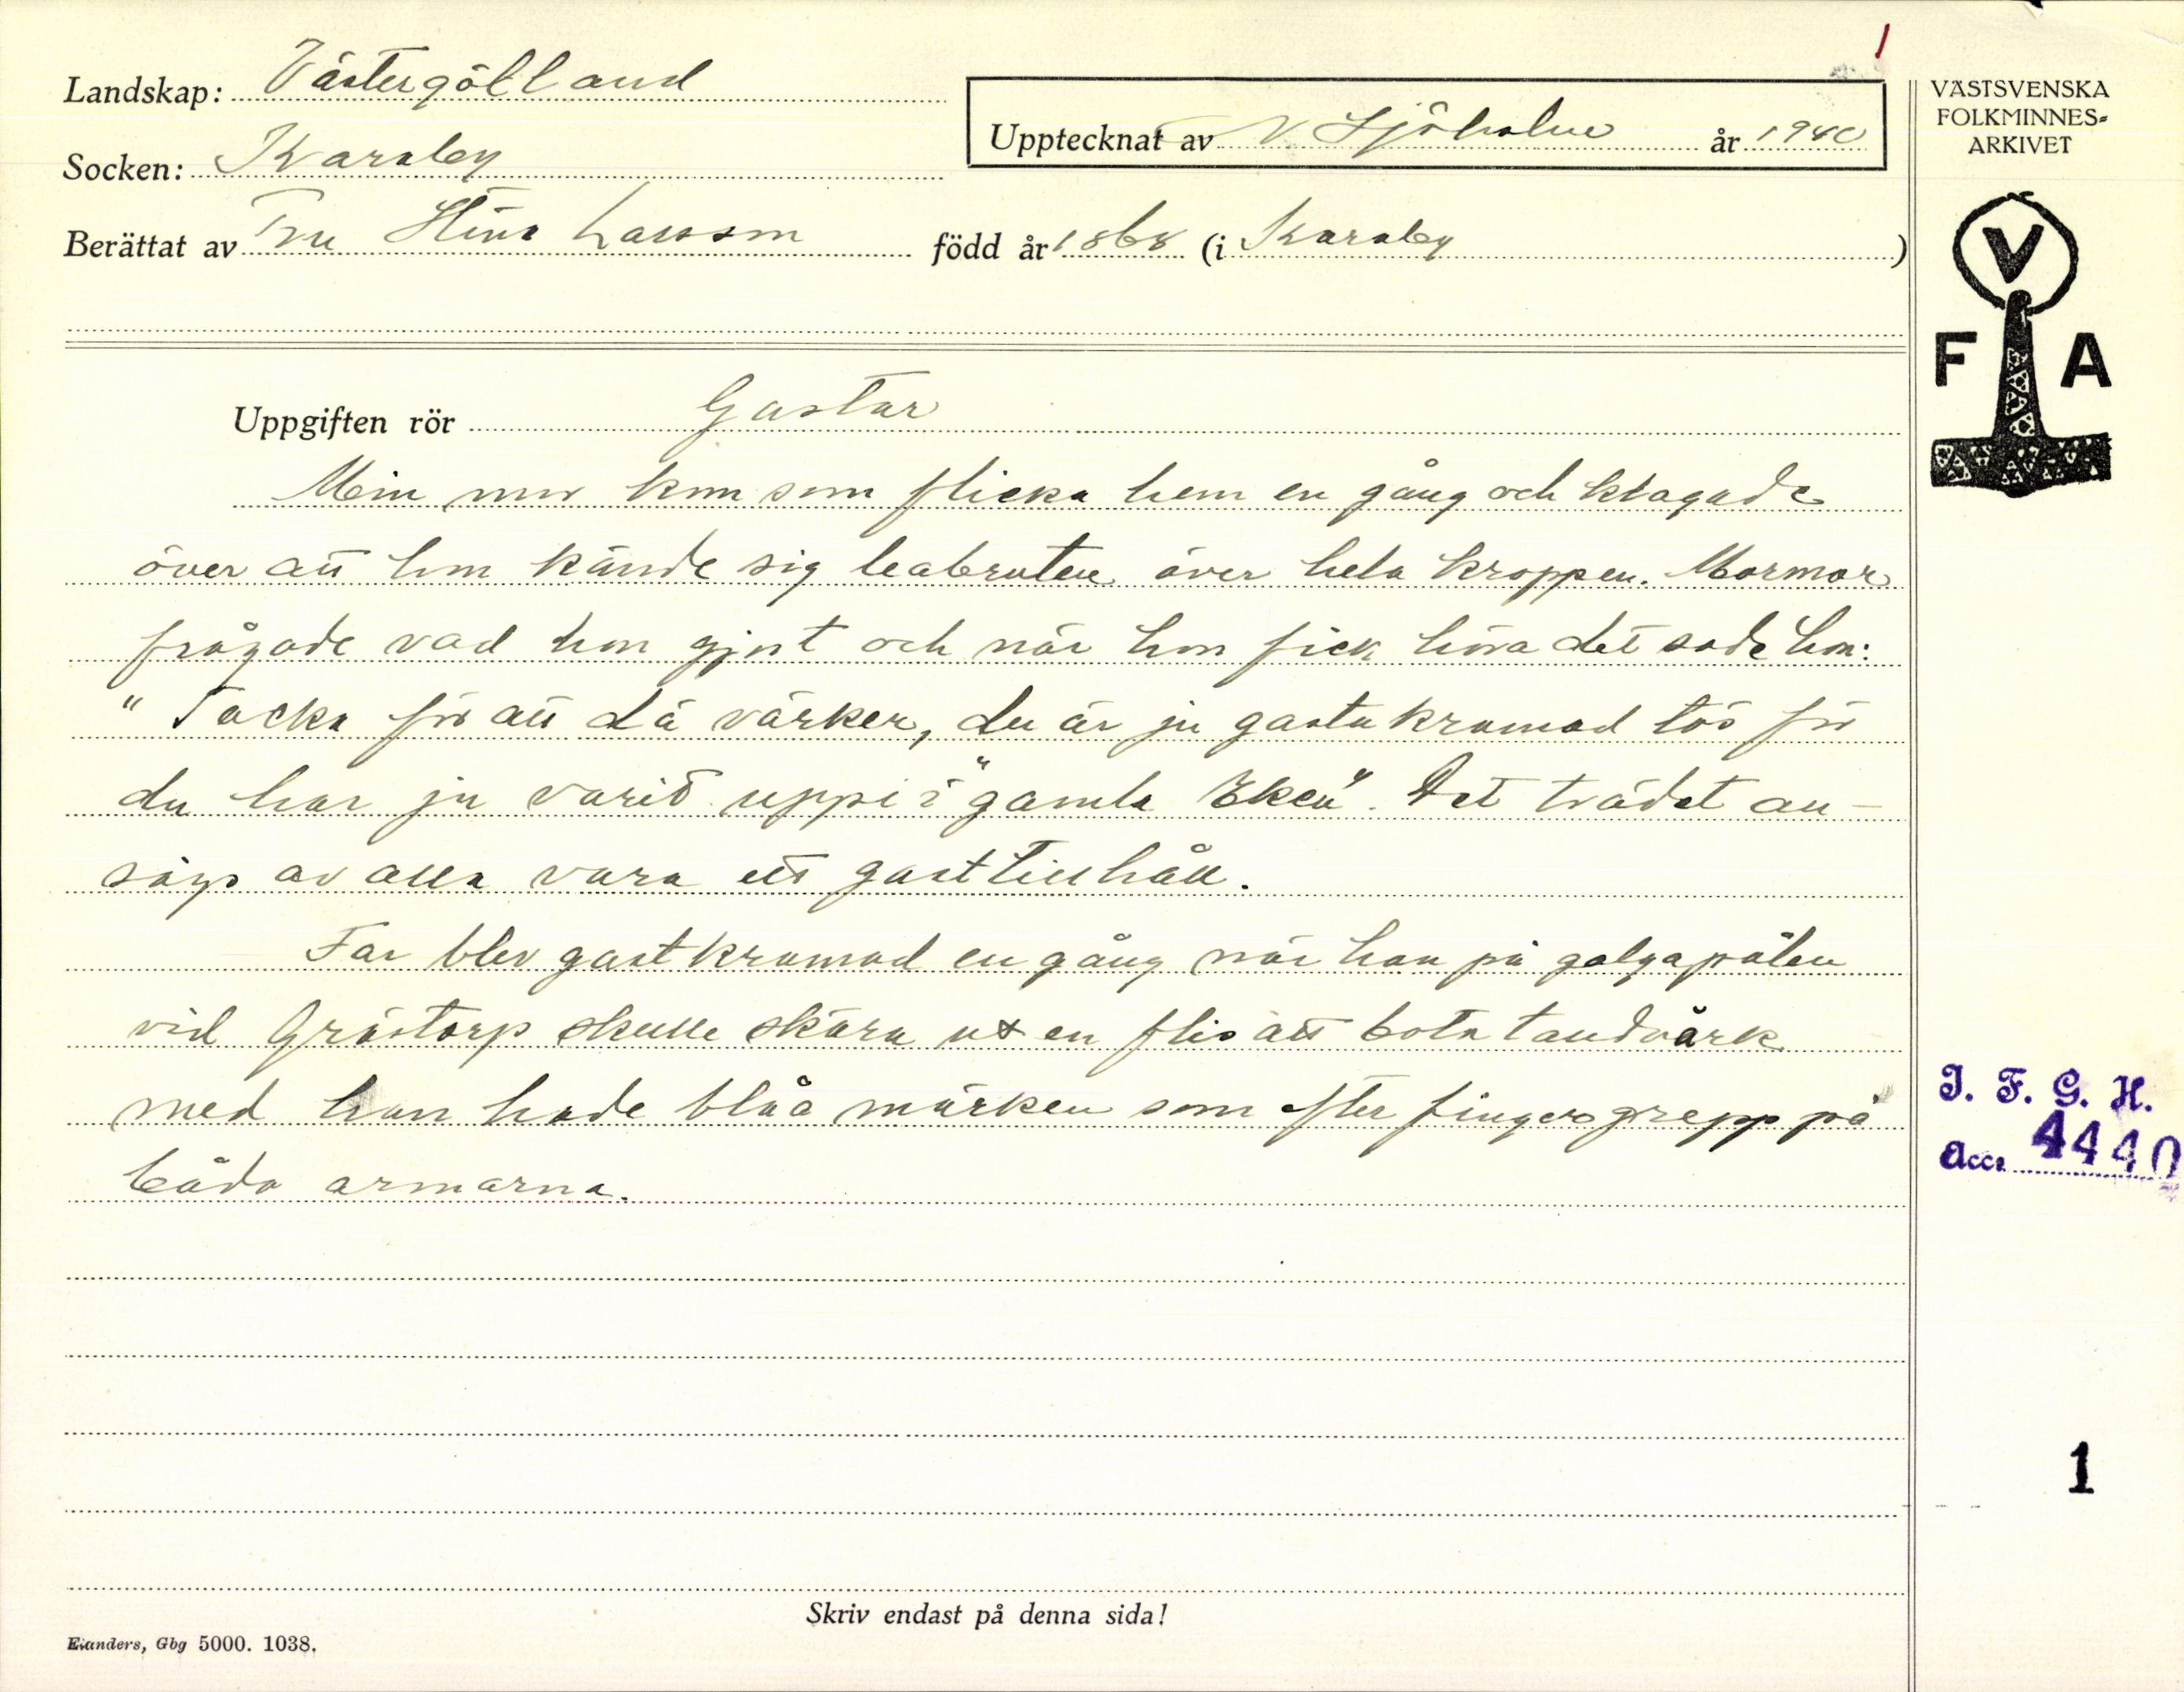 1
Landskap: Västergötland
Upptecknat av V Sjöholm år 1940
VÄSTSVENSKA
FOLKMINNES-
ARKIVET
Socken: Karaby
Berättat av Fru Stina Larsson född år 1868 (i Karaby)
V
F A
Uppgiften rör Gastar
Min mor kom som flicka hem en gång och klagade
över att hon kände sig leabruten över hela kroppen. Mormor
frågade vad hon gjort och när hon fick höra det sade hon:
"Tacka för att dä värker, du är ju gastakramad tös för
du har ju varit uppi i "gamla Eken". Det trädet an-
sågs av alla vara ett gasttillhåll.
Far blev gastkramad en gång när han på galgapålen
vid Grästorp skulle skära ut en flis att bota tandvärk
med han hade blåa märken som efter fingergrepp på
båda armarna.
I. F. G. H.
Acc. 4440
1
Skriv endast på denna sida!
Elanders, Gbg 5000. 1038.